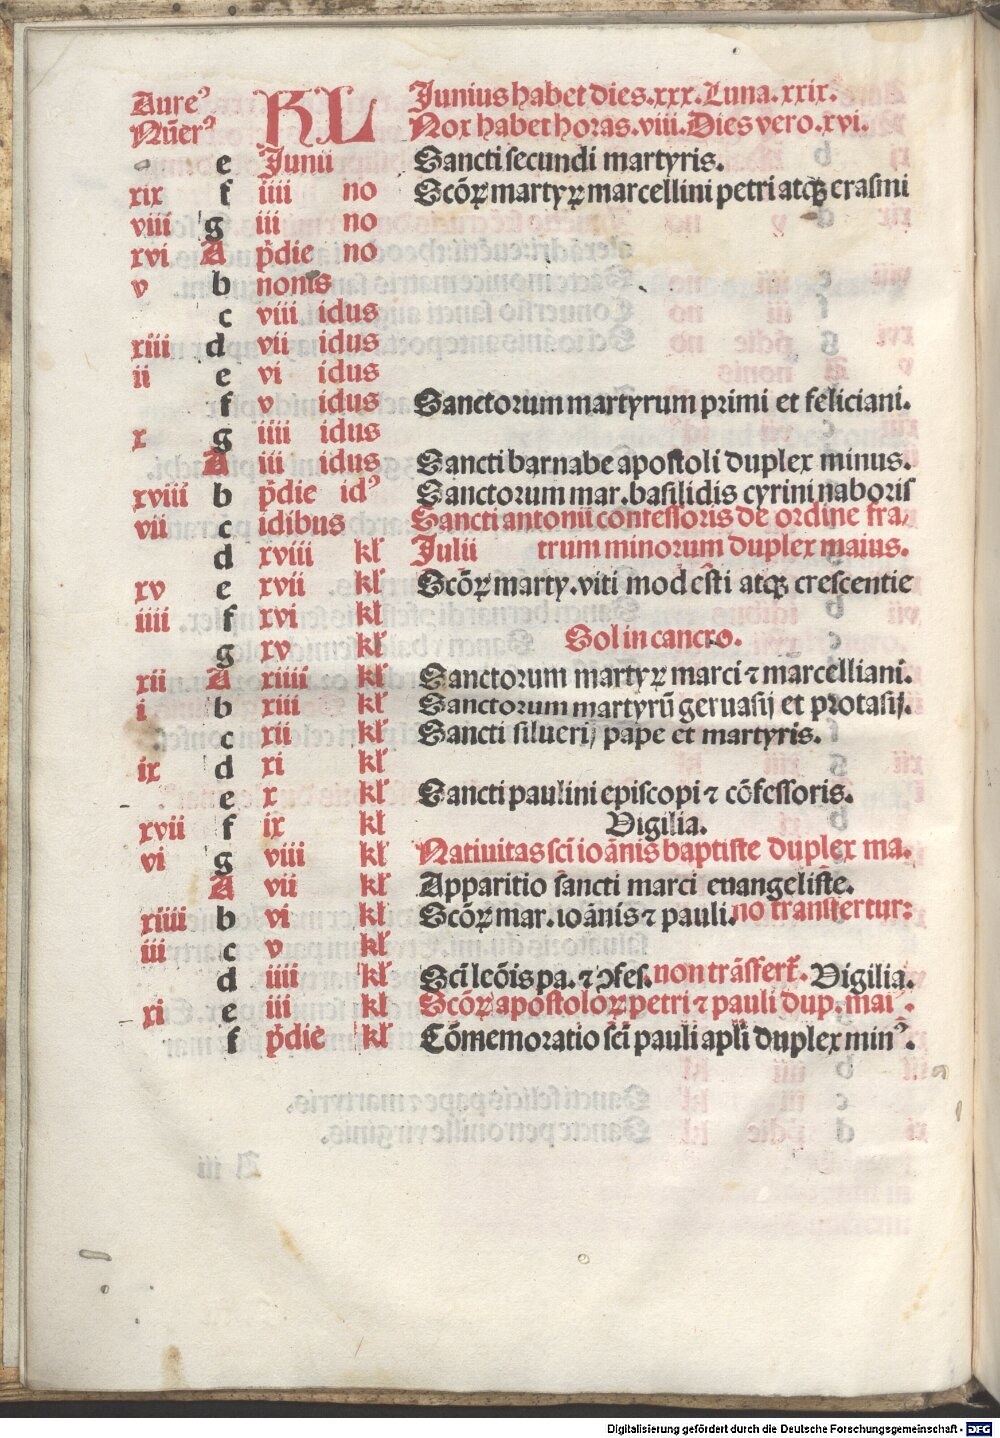 Aureꝰ KL Junius habet dies.xxx.Luna.xxix.
Nūerꝰ Nox habet horas.viii.Dies vero.xvi.
e Junii Sancti secundi martyris.
xix f iiii no Scōꝝ martyꝝ marcellini petri atqꝫ erasmi
viii g iii no
xvi A p̄die no
v b nonis
c viii idus
xiii d vii idus
ii e vi idus
f v idus Sanctorum martyrum primi et feliciani.
x g iiii idus
A iii idus Sancti barnabe apostoli duplex minus.
xviii b p̄die idꝰ Sanctorum mar.basilidis cyrini naboris
vii c idibus Sancti antonii confessoris de ordine fra/
d xviii kl̕ Julii trum minorum duplex maius.
xv e xvii kl̕ Scōꝝ marty.viti modesti atqꝫ crescentie
iiii f xvi kl̕
g xv kl̕ Sol in cancro.
xii A xiiii kl̕ Sanctorum martyꝝ marci ⁊ marcelliani.
i b xiii kl̕ Sanctorum martyrū geruasij et protasij.
c xii kl̕ Sancti siluerij pape et martyris.
ix d xi kl̕
e x kl̕ Sancti paulini episcopi ⁊ cōfessoris.
xvii f ix kl Vigilia.
vi g viii kl̕ Natiuitas sci̅ ioānis baptiste duplex ma.
A vii kl̕ Apparitio sancti marci euangeliste.
xiiii b vi kl̕ Scōꝝ mar.ioānis ⁊ pauli.no transfertur:
iii c v kl̕
d iiii kl̕ Sci̅ leōis pa.⁊ ꝯfes.non trāsfert̕. Vigilia.
xi e iii kl̕ Scōꝝ apostoloꝝ petri ⁊ pauli dup.maiꝰ:
f p̄die kl̕ Cōmemoratio sci̅ pauli apl̅i duplex minꝰ.
Digitalisierung gefördert durch die Deutsche Forschungsgemeinschaft - DFG